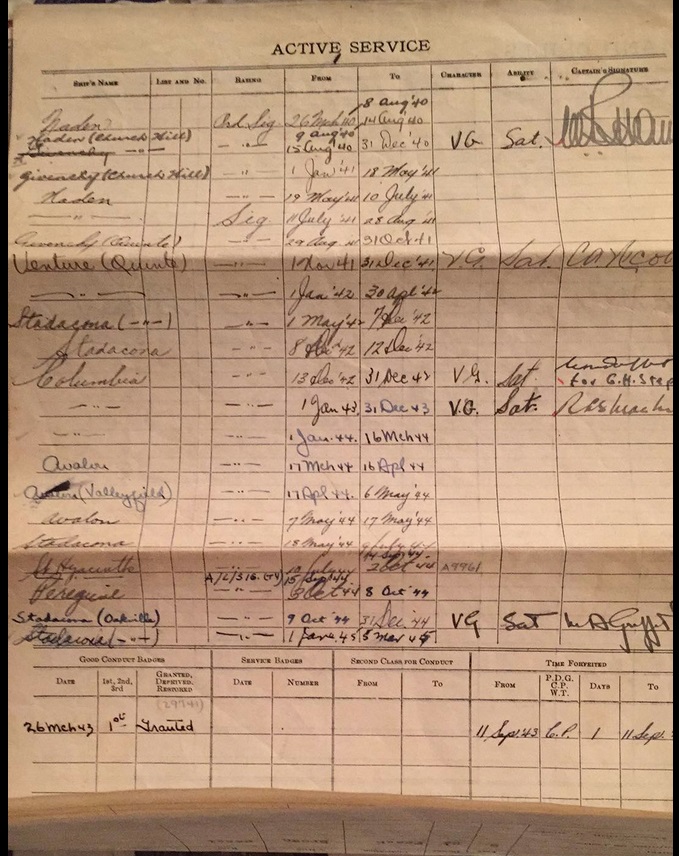 ACTIVE SERVICE
SHIP'S NAME LIST AND NO. RATING FROM TO CHARACTER ABILITY CAPTAIN'S SIGNATURE
8 Aug '40
Naden Ord Sig 26 Mch '40 14 Aug '40
Naden (Church Hill) 9 Aug '40
Givenchy -"- -"- 15 Aug '40 31 Dec '40 V.G. Sat.
Givenchy (Church Hill) -"- 1 Jan '41 18 May '41
Naden -"- 19 May '41 10 July '41
-"- Sig 11 July '41 28 Aug '41
Givenchy (Quinte) -"- 29 Aug '41 31 Oct '41
Venture (Quinte) -"- 1 Nov 41 31 Dec '41 V.G. Sat.
-"- -"- 1 Jan '42 30 Apl '42
Stadacona (-"-) -"- 1 May '42 7 Dec '42
Stadacona -"- 8 Dec '42 12 Dec '42
Columbia -"- 13 Dec '42 31 Dec 42 V.G. Sat
for G.H.
-"- -"- 1 Jan 43 31 Dec 43 V.G. Sat.
-"- -"- 1 Jan. 44. 16 Mch 44
Avalon -"- 17 Mch 44 16 Apl 44
Avalon (Valleyfield) -"- 17 Apl 44. 6 May '44
Avalon -"- 7 May '44 17 May '44
Stadacona -"- 18 May '44 9 July 44
14 Sep 44.
St Hyacinthe -"- 10 July 44 2 Oct 44 A9961
A/L/SIG. (T4) 15 Sep 44
Peregrine -"- 3 Oct 44 8 Oct 44
Stadacona (Oakville) -"- 9 Oct '44 31 Dec '44 VG Sat
Stadacona (-"-) -"- 1 Jan. 45 3 Mar 45
GOOD CONDUCT BADGES SERVICE BADGES SECOND CLASS FOR CONDUCT TIME FORFEITED
DATE 1st, 2nd, 3rd GRANTED, DEPRIVED, RESTORED DATE NUMBER FROM TO FROM P.D.G. C.P. W.T. DAYS TO
(29741)
26 Mch 43 1st Granted 11 Sept. 43 C.P. 1 11 Sept.